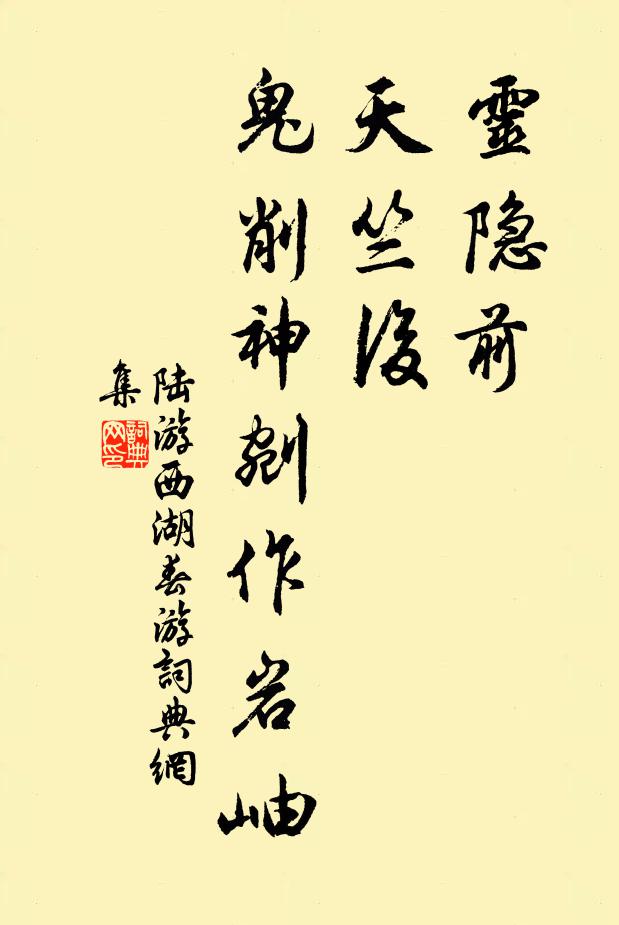 靈隐前
天竺後
鬼削神剜作岩岫
陆游西湖春游詞典網
集
詞典
网印